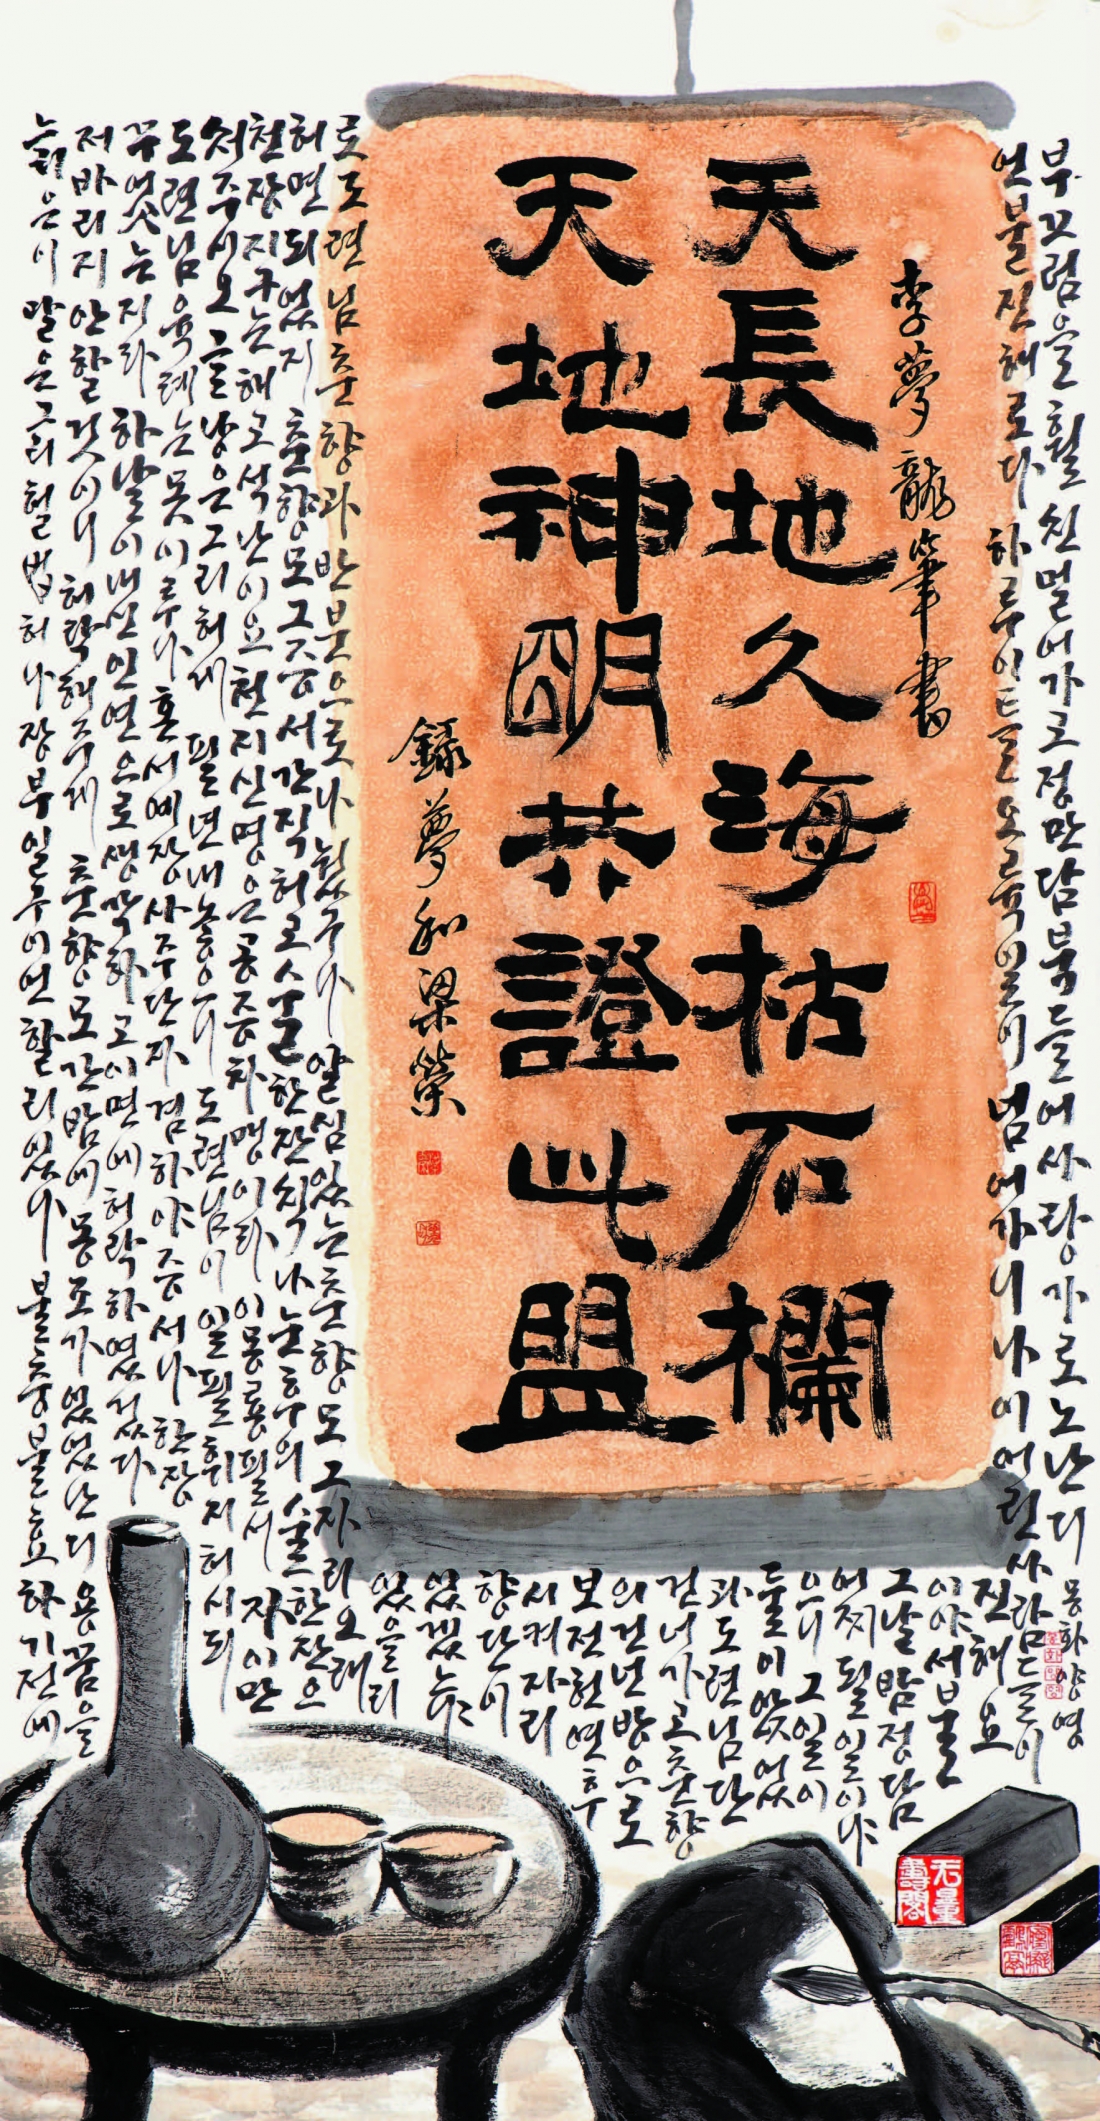 부끄럼을 훨신 멀어가고 정만 담북 들어 사랑가로 노난디
몽화양영
언불진해로다 하루 이틀 오륙일이 넘어가니 나이 어린 사람들이
李夢龍筆書
天長地久海枯石欄
天地神明共證此盟
錄夢和梁榮
진해요
그날 밤 정담
으니 그 일이
둘이 앉었
과 도련님 단
건너가고 춘향
의 건넌방으로
보전헌 연후
시켜 자리
향단이
있을리
로 도련님 춘향과 반분으로나 눴구나 알심있는 춘향모 그 자리 오래
허면 되었지 춘향모 그 증서 간직허고 술 한잔식 나눈 후의 술 한잔으
천장지구는 해고석난이요 천지신명은 공증차맹이라 이몽룡 필서 자 이만
써주시오 글낭은 그리 허제 필년 내놓으니 도련님이 일필휘지 허시되
도련님 육례는 못 이루나 혼서예장 사주단자 겸하야 증서나 한 장
꾸었는지라 하날이 내신 인연으로 생각하고 이면에 허락하였것다
저바리지 안할 것이니 허락해주게 춘향모 간밤에 몽조가 있었난디 용꿈을
늙은이 말은 그리 헐 허나 장부일구이언 할리있나 불충불효 하기 전에